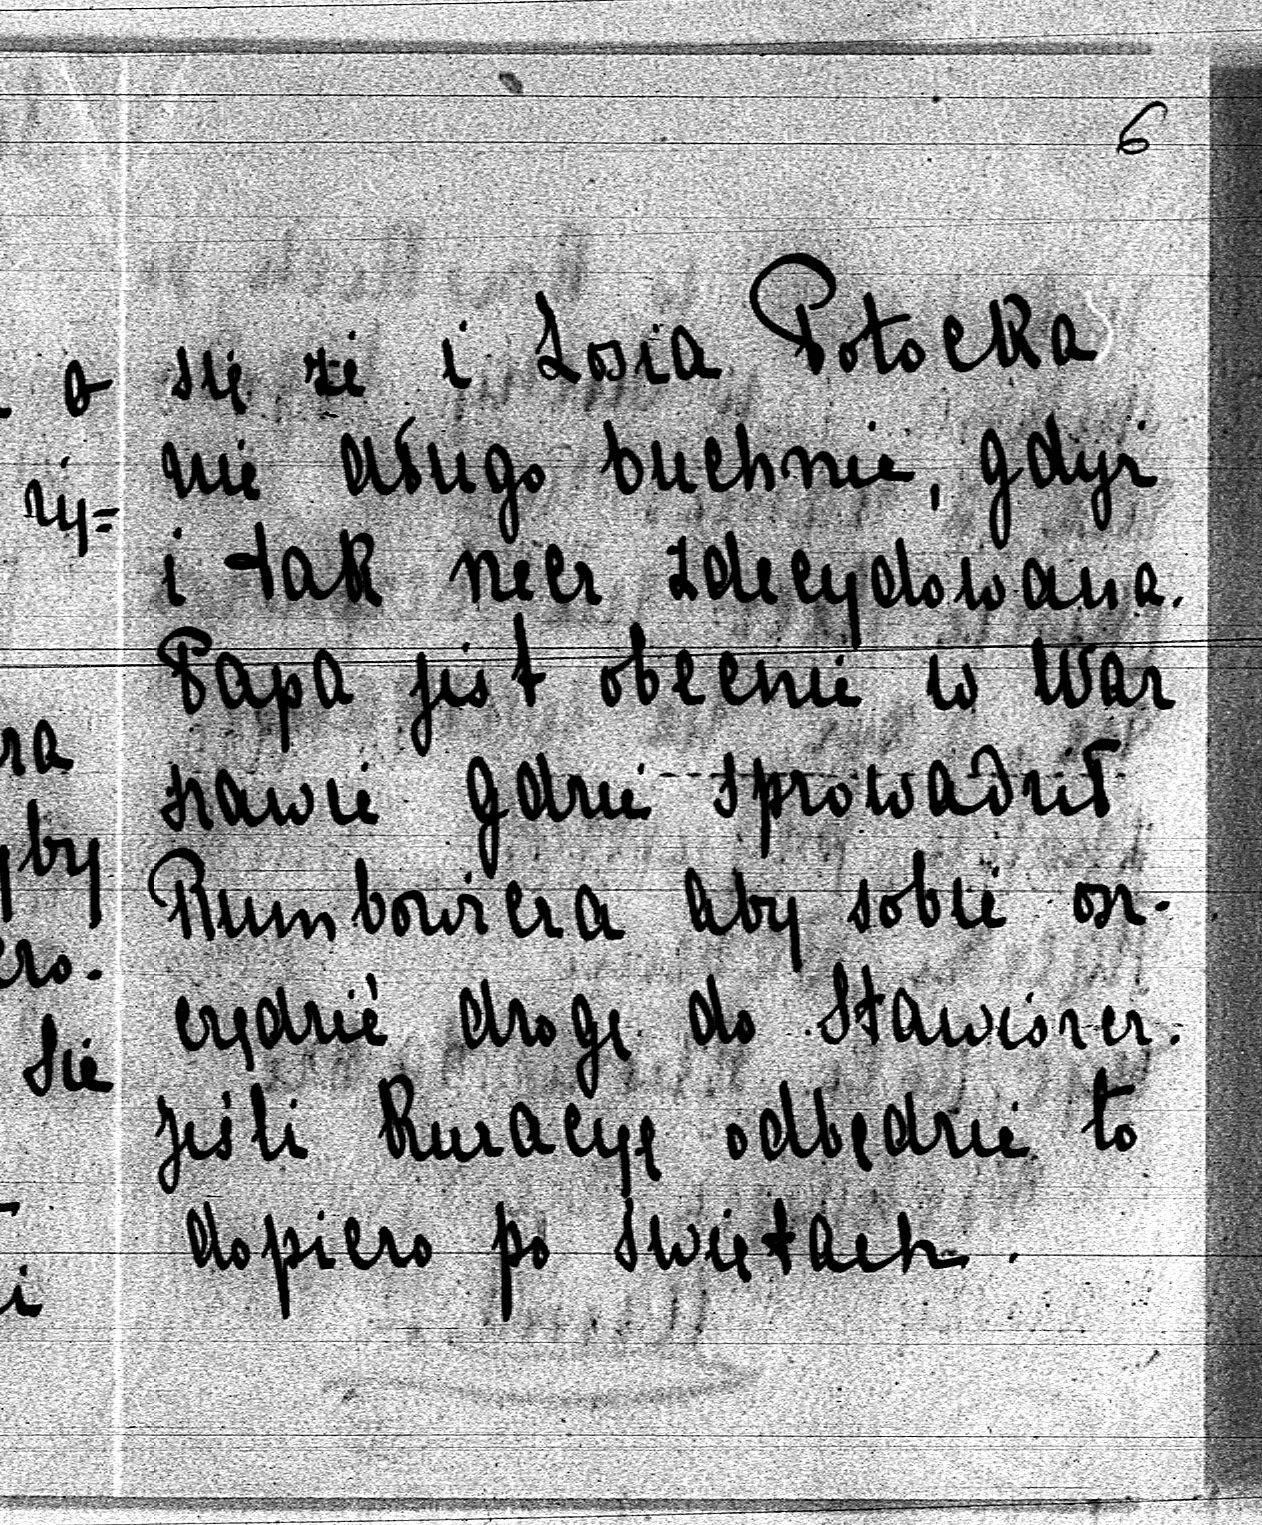 6
się że i Zosia Potocka
nie długo buchnie, gdyż
i tak rzecz zdecydowana.
Papa jest obecnie w War
szawie gdzie sprowadził
Rumbowicza aby sobie osz-
czędzić drogę do Stawiszcz.
jeśli kuracyę odbędzie to
dopiero po Świętach.